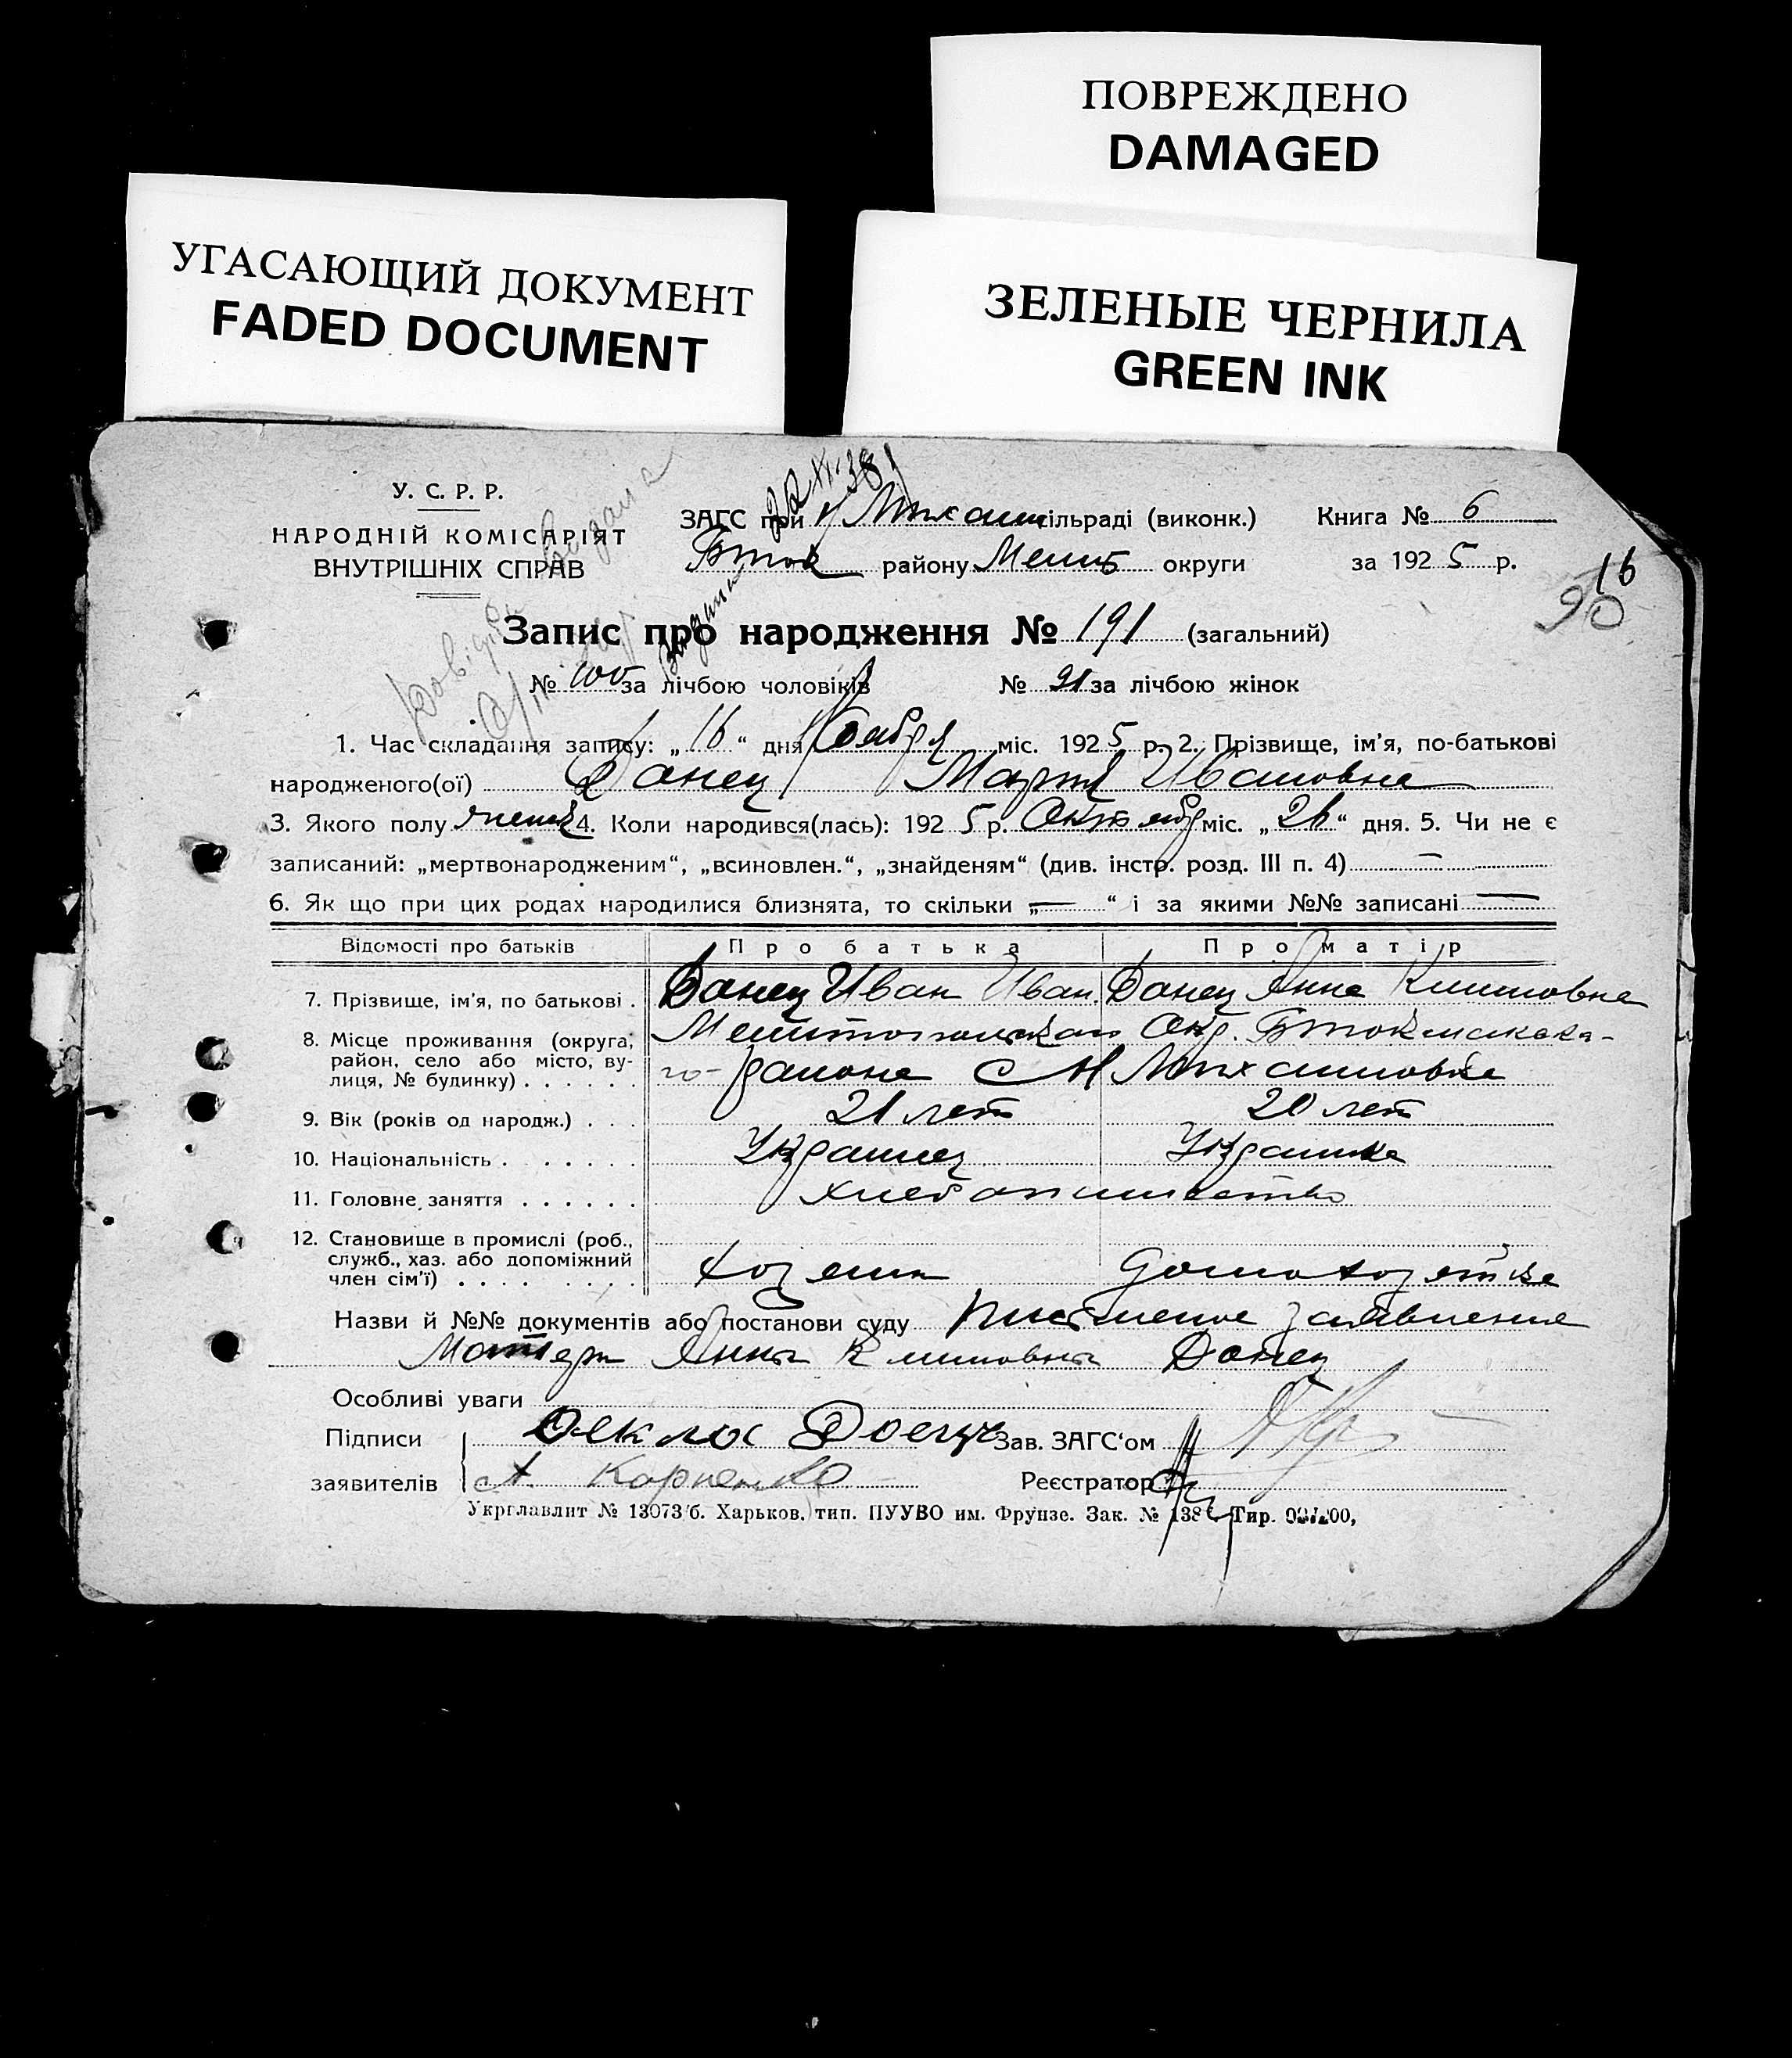 ПОВРЕЖДЕНО
DAMAGED
УГАСАЮЩИЙ ДОКУМЕНТ
FADED DOCUMENT
ЗЕЛЕНЫЕ ЧЕРНИЛА
GREEN INK
У. С. Р. Р.
НАРОДНІЙ КОМІСАРІЯТ
ВНУТРІШНІХ СПРАВ
22 XI 38
ЗАГС при сільраді (виконк.) Книга № 6
Бток району Мелит округи за 1925 р.
16
90
Запис про народження № 191 (загальний)
№ 100 за лічбою чоловіків № 91 за лічбою жінок
1. Час складання запису: „16“ дня Ноября міс. 1925 р. 2. Прізвище, ім'я, по-батькові
народженого(ої) Донец Мария Ивановна
3. Якого полу женск 4. Коли народився(лась): 1925 р. Октября міс. „26“ дня. 5. Чи не є
записаний: „мертвонародженим“, „всиновлен.“, „знайденям“ (див. інстр. розд. III п. 4) —
6. Як що при цих родах народилися близнята, то скільки „—“ і за якими №№ записані —
Відомості про батьків Про батька Про матір
7. Прізвище, ім'я, по батькові . Донец Иван Иван. Донец Анна Климовна
8. Місце проживання (округа, район, село або місто, вулиця, № будинку) . . . . . . Мелитопольская Окр. Бтокмакско-
го- района с М Михайловка
9. Вік (років од народж.) . . . 21 лет 20 лет
10. Національність . . . . . . Украинец Украинка
11. Головне заняття . . . . . . хлебопашество
12. Становище в промислі (роб., служб., хаз. або допоміжний член сім'ї) . . . . . . . . хозяин домохозяйка
Назви й №№ документів або постанови суду письменое заявление
Матери Анны Климовны Донец
Особливі уваги
Підписи Зав. ЗАГС'ом
заявителів А. Карпенко Реєстратор
Укрглавлит № 13073/б. Харьков, тип. ПУУВО им. Фрунзе. Зак. № 138 Тир.